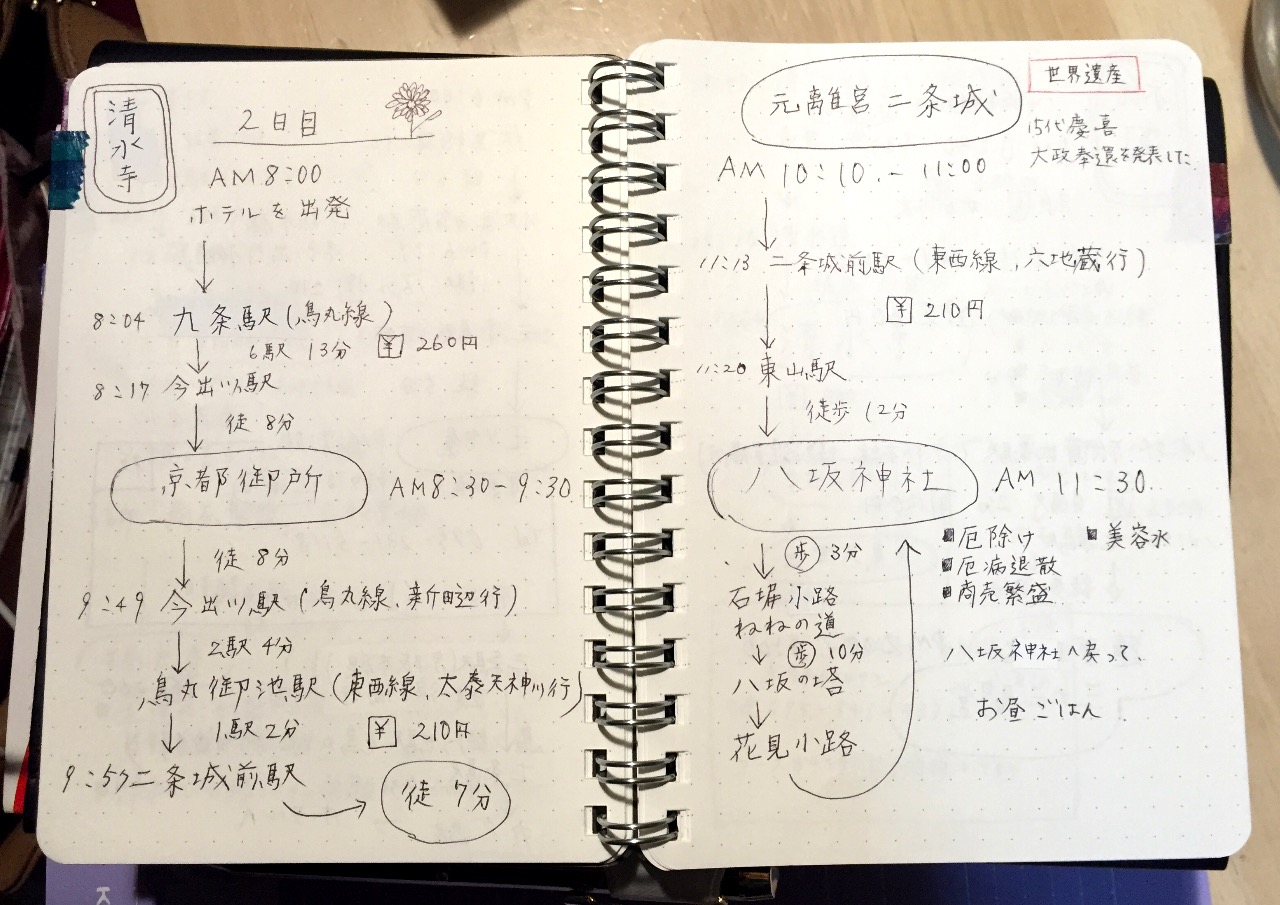 清水寺
2日目
AM8:00
ホテルを出発
8:04 九条駅(烏丸線)
6駅 13分 ¥ 260円
8:17 今出川駅
徒 8分
京都御所 AM8:30-9:30
徒 8分
9:49 今出川駅(烏丸線、新田辺行)
2駅 4分
烏丸御池駅(東西線、太秦天神川行)
1駅2分 ¥ 210円
9:57 二条城前駅
徒 7分
元離宮 二条城
世界遺産
15代慶喜
大政奉還を発表した
AM 10:10 - 11:00
11:13 二条城前駅(東西線、六地蔵行)
¥ 210円
11:20 東山駅
徒歩 12分
八坂神社 AM 11:30
歩 3分
石塀小路
ねねの道
歩 10分
八坂の塔
花見小路
■厄除け ■美容水
■厄病退散
■商売繁盛
八坂神社へ戻って、
お昼ごはん
K